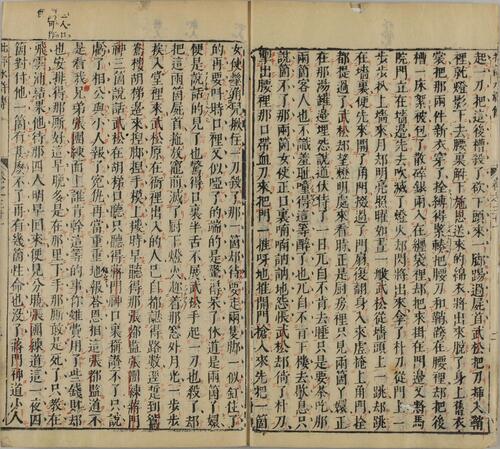 起一刀把這後槽殺了砍下頭來一脚踢過屍首武松把刀插入鞘
裡就燈影下去腰裏解下施恩送來的綿衣將出來脫了身上舊衣
裳把那兩件新衣穿了拴縛得緊輳把腰刀和鞘跨在腰裡却把後
槽一床絮被包了散碎銀兩入在纏袋裡却把來掛在門邊又將馬
院門立在墻邊先去吹滅了燈火却閃將出來拿了朴刀從門上一
步步扒上墻來月却明亮照耀如晝一武松從墻頭一跳却跳
在墻裏便先來開了角門掇過了門扇復翻身入來虛掩上角門拴
都提過了武松却望燈明處來看時正是厨房裡只見兩箇丫嬛正
在那湯罐邊埋怨說道伏侍了一日兀自不肯去睡只是要茶吃那
兩箇客人也不識羞耻噇得這等醉了也兀自不肯下樓去歇息只
說箇不了那兩箇女使正口裏喃喃訥訥地怨悵武松却倚了朴刀
掣出腰裡那口帶血刀來把門一推呀地推開門搶入來先把一箇
女使髽角兒揪住一刀殺了那一箇却待要走兩隻脚一似釘住了
的再要叫時口裡又似啞了的端的是驚得呆了休道是兩箇丫嬛
便是說話的見了也驚得口裏半舌不展武松手起一刀也殺了却
把這兩箇屍首拖放竈前滅了厨下燈火趁着那窓外月光一步步
挨入堂裡來武松原在衙裡出入的人已自都認得路數逕踅到鴛
鴦樓胡梯邊來捏脚捏手摸上樓時早聽得那張都監張團練蔣門
神三箇說話武松在胡梯口聽只聽得蔣門神口裏稱讚不了只說
虧了相公與小人報了冤仇再當重重地報荅恩相這張都監道不
是看我兄弟張團練面上誰肯幹這等的事你雖費用了些錢財却
也安排得那厮好這早晚多是在那里下手那厮敢是死了只教在
飛雲浦結果他待那四人明早回來便見分曉張團練道這一夜四
箇對付他一箇有甚麼不了再有幾箇性命也沒了蔣門神道小人